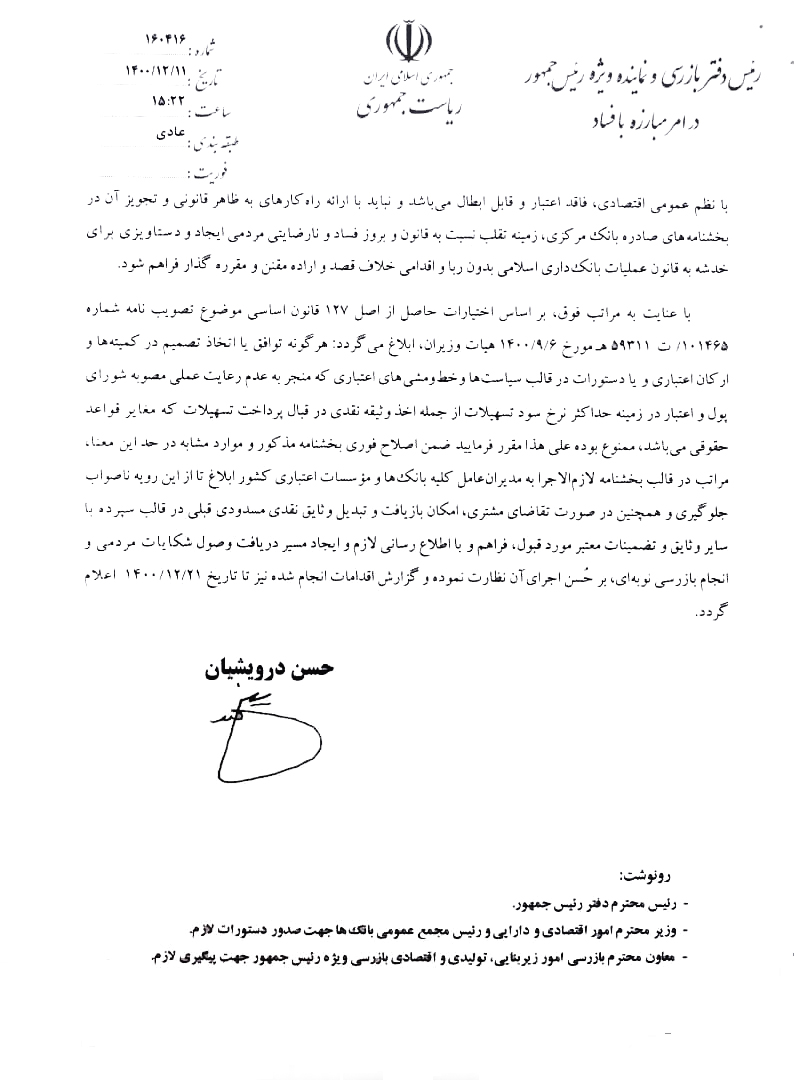 رئیس دفتر بازرسی و نماینده ویژه رئیس جمهور
در امر مبارزه با فساد
جمهوری اسلامی ایران
ریاست جمهوری
شماره: ۱۶۰۴۱۶
تاریخ: ۱۴۰۰/۱۲/۱۱
ساعت: ۱۵:۲۲
طبقه بندی: عادی
فوریت:
با نظم عمومی اقتصادی، فاقد اعتبار و قابل ابطال می‌باشد و نباید با ارائه راه کارهای به ظاهر قانونی و تجویز آن در
بخشنامه‌های صادره بانک مرکزی، زمینه تقلب نسبت به قانون و بروز فساد و نارضایتی مردمی ایجاد و دستاویزی برای
خدشه به قانون عملیات بانک‌داری اسلامی بدون ربا و اقدامی خلاف قصد و اراده مقنن و مقرره گذار فراهم شود.
با عنایت به مراتب فوق، بر اساس اختیارات حاصل از اصل ۱۲۷ قانون اساسی موضوع تصویب نامه شماره
۱۰۱۴۶۵/ ت ۵۹۳۱۱ هـ مورخ ۱۴۰۰/۹/۶ هیات وزیران، ابلاغ می‌گردد: هرگونه توافق یا اتخاذ تصمیم در کمیته‌ها و
ارکان اعتباری و یا دستورات در قالب سیاست‌ها و خط‌ومشی‌های اعتباری که منجر به عدم رعایت عملی مصوبه شورای
پول و اعتبار در زمینه حداکثر نرخ سود تسهیلات از جمله اخذ وثیقه نقدی در قبال پرداخت تسهیلات که مغایر قواعد
حقوقی می‌باشد، ممنوع بوده علی هذا مقرر فرمایید ضمن اصلاح فوری بخشنامه مذکور و موارد مشابه در حد این معنا،
مراتب در قالب بخشنامه لازم‌الاجرا به مدیران‌عامل کلیه بانک‌ها و مؤسسات اعتباری کشور ابلاغ تا از این رویه ناصواب
جلوگیری و همچنین در صورت تقاضای مشتری، امکان بازیافت و تبدیل وثایق نقدی مسدودی قبلی در قالب سپرده با
سایر وثایق و تضمینات معتبر مورد قبول، فراهم و با اطلاع رسانی لازم و ایجاد مسیر دریافت وصول شکایات مردمی و
انجام بازرسی نوبه‌ای، بر حُسن اجرای آن نظارت نموده و گزارش اقدامات انجام شده نیز تا تاریخ ۱۴۰۰/۱۲/۲۱ اعلام
گردد.
حسن درویشیان
رونوشت:
- رئیس محترم دفتر رئیس جمهور.
- وزیر محترم امور اقتصادی و دارایی و رئیس مجمع عمومی بانک ها جهت صدور دستورات لازم.
- معاون محترم بازرسی امور زیربنایی، تولیدی و اقتصادی بازرسی ویژه رئیس جمهور جهت پیگیری لازم.